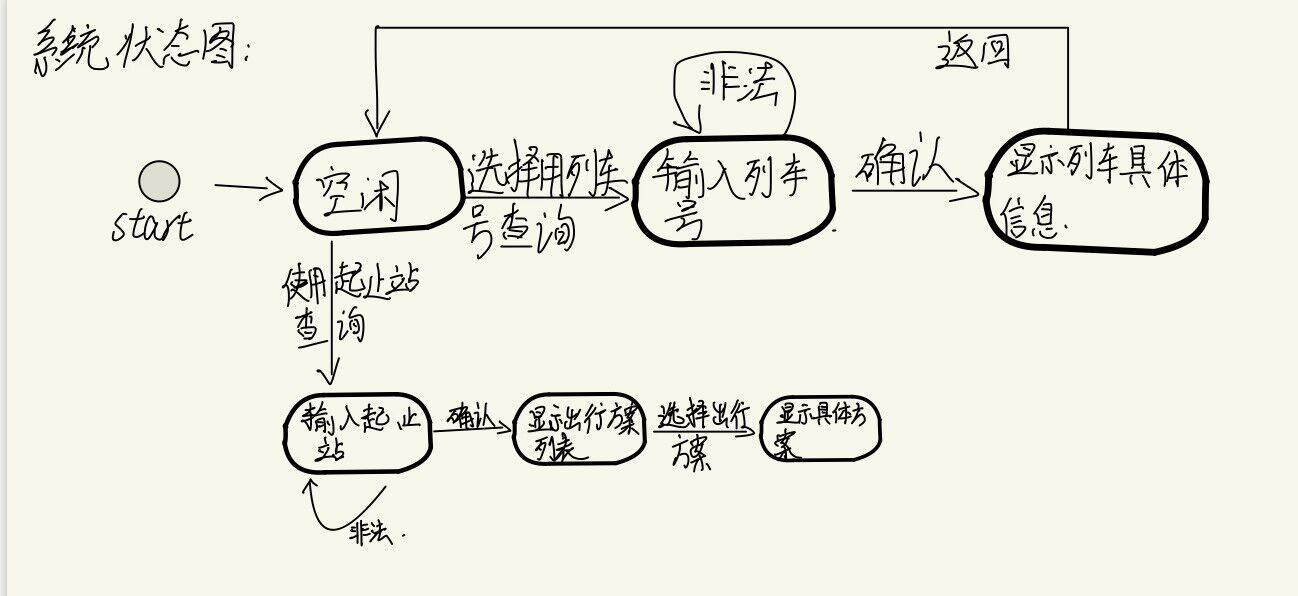 系统状态图:
返回
非法
start
空闲
选择用列车
号查询
输入列车
号
确认
显示列车具体
信息.
使用起止站
查询
输入起止
站
确认
显示出行方案
列表
选择出行
方案
显示具体方
案
非法.